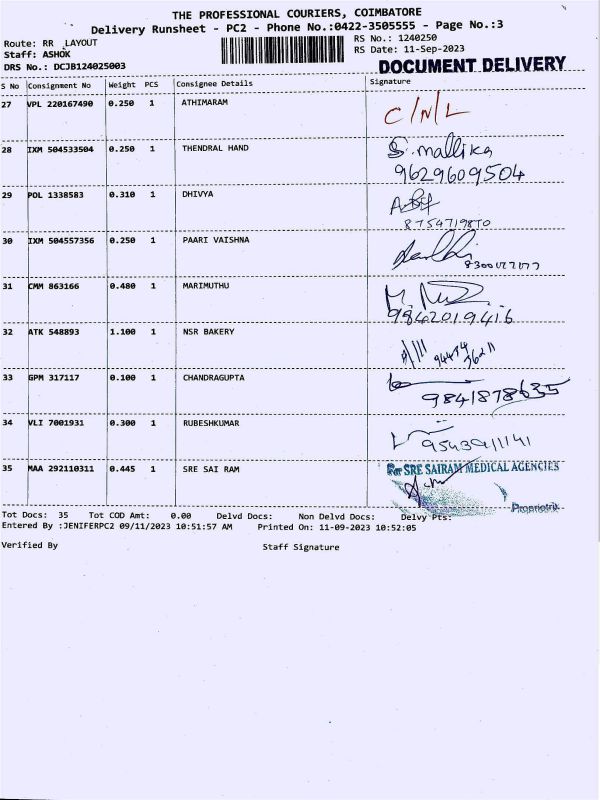 THE PROFESSIONAL COURIERS, COIMBATORE
Delivery Runsheet - PC2 - Phone No.:0422-3505555 - Page No.:3
Route: RR LAYOUT
RS No.: 1240250
Staff: ASHOK
RS Date: 11-Sep-2023
DRS No.: DCJB124025003
DOCUMENT DELIVERY
S No Consignment No Weight PCS Consignee Details Signature
27 VPL 220167490 0.250 1 ATHIMARAM C/N/L
28 IXM 504533504 0.250 1 THENDRAL HAND S. mallika
9629609504
29 POL 1338583 0.310 1 DHIVYA
8754719870
30 IXM 504557356 0.250 1 PAARI VAISHNA
31 CMM 863166 0.480 1 MARIMUTHU
9842019416
32 ATK 548893 1.100 1 NSR BAKERY
33 GPM 317117 0.100 1 CHANDRAGUPTA
9841878635
34 VLI 7001931 0.300 1 RUBESHKUMAR
35 MAA 292110311 0.445 1 SRE SAI RAM For SRE SAIRAM MEDICAL AGENCIES
Tot Docs: 35 Tot COD Amt: 0.00 Delvd Docs: Non Delvd Docs: Delvy Pts:
Entered By :JENIFERPC2 09/11/2023 10:51:57 AM Printed On: 11-09-2023 10:52:05
Verified By Staff Signature